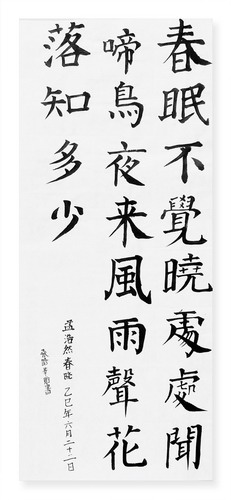 春眠不覺曉處處聞
啼鳥夜来風雨聲花
落知多少
孟浩然春曉 乙巳年六月二十二日